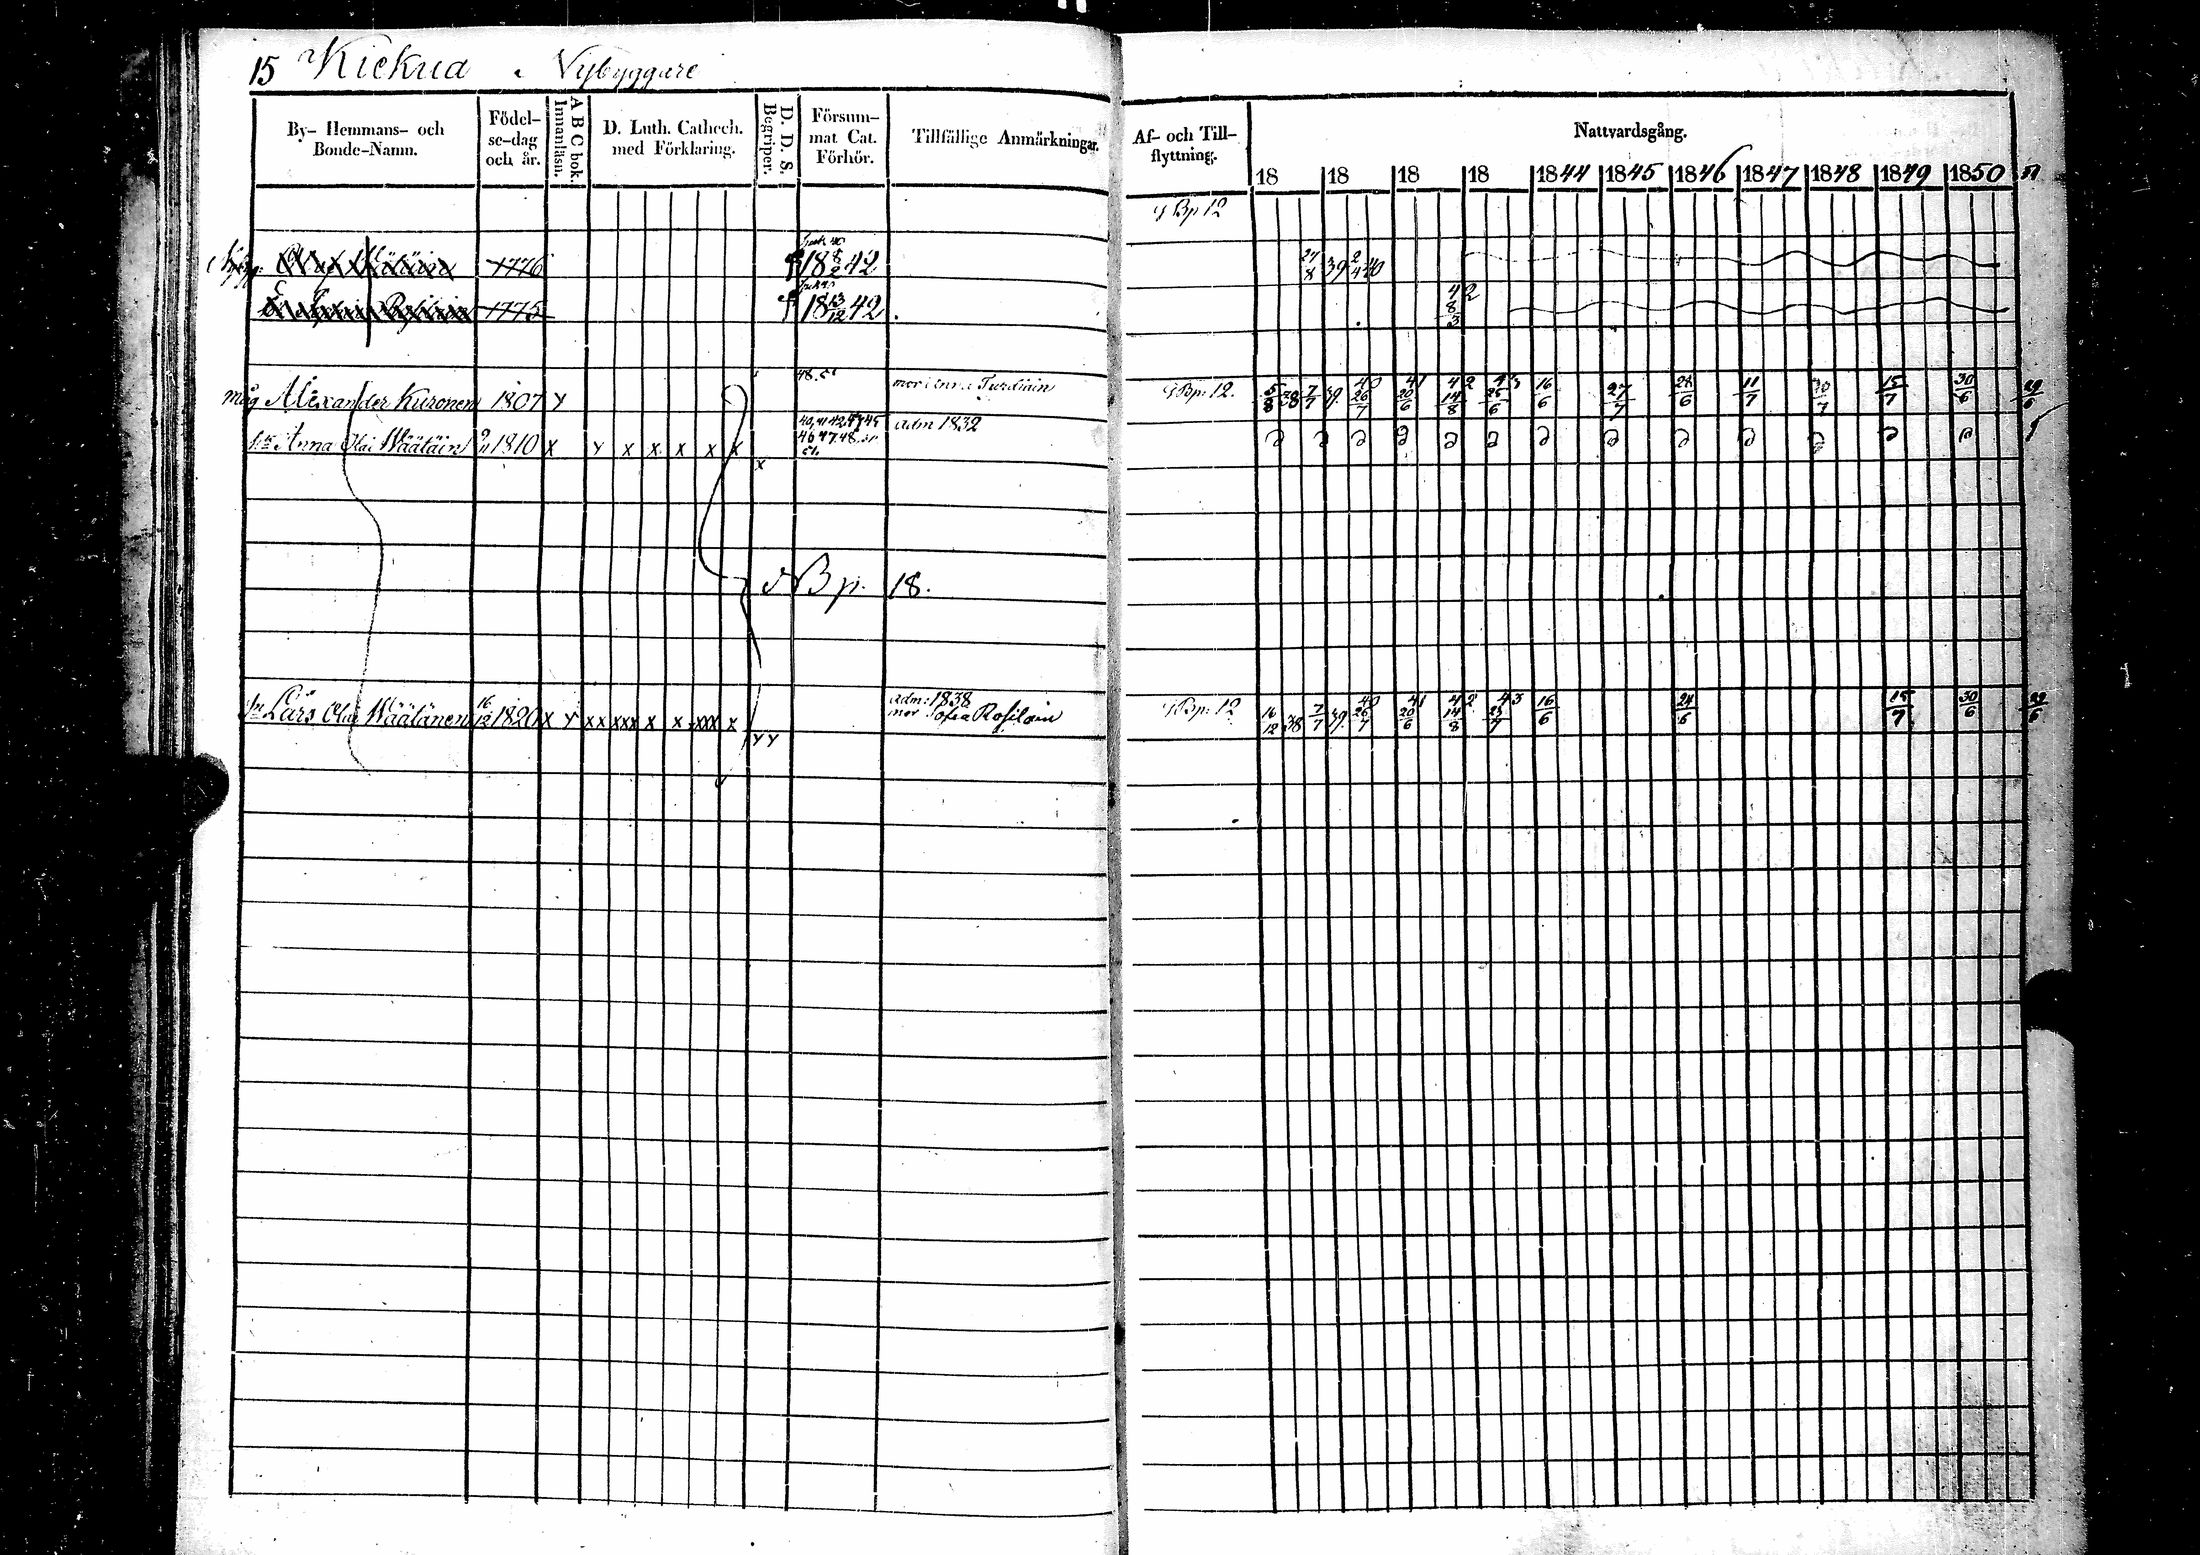 15 Kickua Nybyggare
By- Hemmans- och Bonde-Namn.
Födel- se-dag och år.
A B C bok. Innanläsn.
D. Luth. Cathech. med Förklaring.
D. D. S. Begriper.
Försum- mat Cat. Förhör.
Tillfällige Anmärkningar.
Af- och Till- flyttning.
Nattvardsgång.
18 18 18 18 1844 1845 1846 1847 1848 1849 1850 51
Bp 12
1776 18 8/2 42 27/8 39 2/4 40
1775 18 13/12 42 42 8/3
48. 51
måg Alexander Kuronen 1807 Y Bp: 12. 5/8 38 7/7 39. 40 26/7 41 20/6 42 14/8 43 25/6 16/6 27/7 28/6 11/7 15/7 30/6 29/6
Anna Olai Wäätäin 1810 X Y X X X X X X 40, 41 42 43 45 46 47 48 51. Adm 1832
Bp. 18.
Lars Olai Wäätänen 16/12 1820 X Y XX XXX X X XXX X YY Adm: 1838 mor Sofia Rosilain Bp: 12 16/12 38 7/7 39. 40 26/7 41 20/6 42 14/8 43 25/7 16/6 24/6 15/7 30/6 29/6